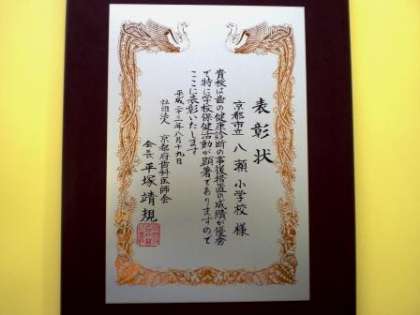 表彰状
京都市立 八瀬小学校 様
貴校は歯の健康診断の事後措置の成績が優秀
で特に学校保健活動が顕著でありますので
ここに表彰いたします
平成二十二年八月十九日
社団法人 京都府歯科医師会
会長 平塚靖規